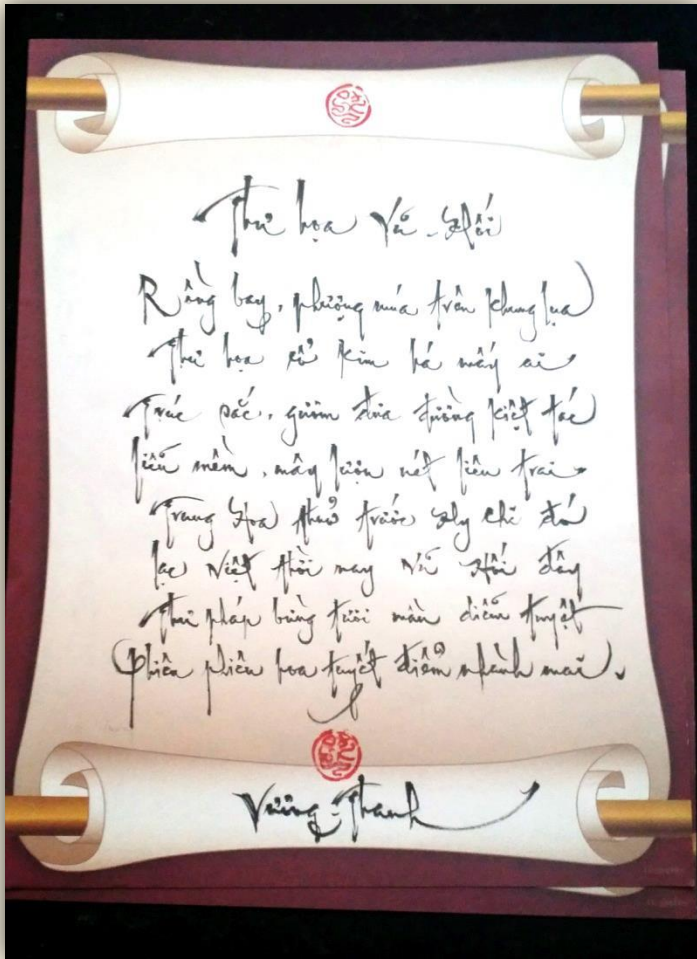 Thư họa Vũ-Hối
Rồng bay, phượng múa trên khung lụa
Thư họa cổ kim há mấy ai
Trúc sắc, gươm đưa đường kiệt tác
Liễu mềm, mây lượn nét liêu trai
Trung Hoa thuở trước Hy Chi đó
Lạc Việt thời nay Vũ Hối đây
Thư pháp bừng tươi màu diễm tuyệt
Phiêu phiêu hoa tuyết điểm nhành mai.
Vương-Thanh